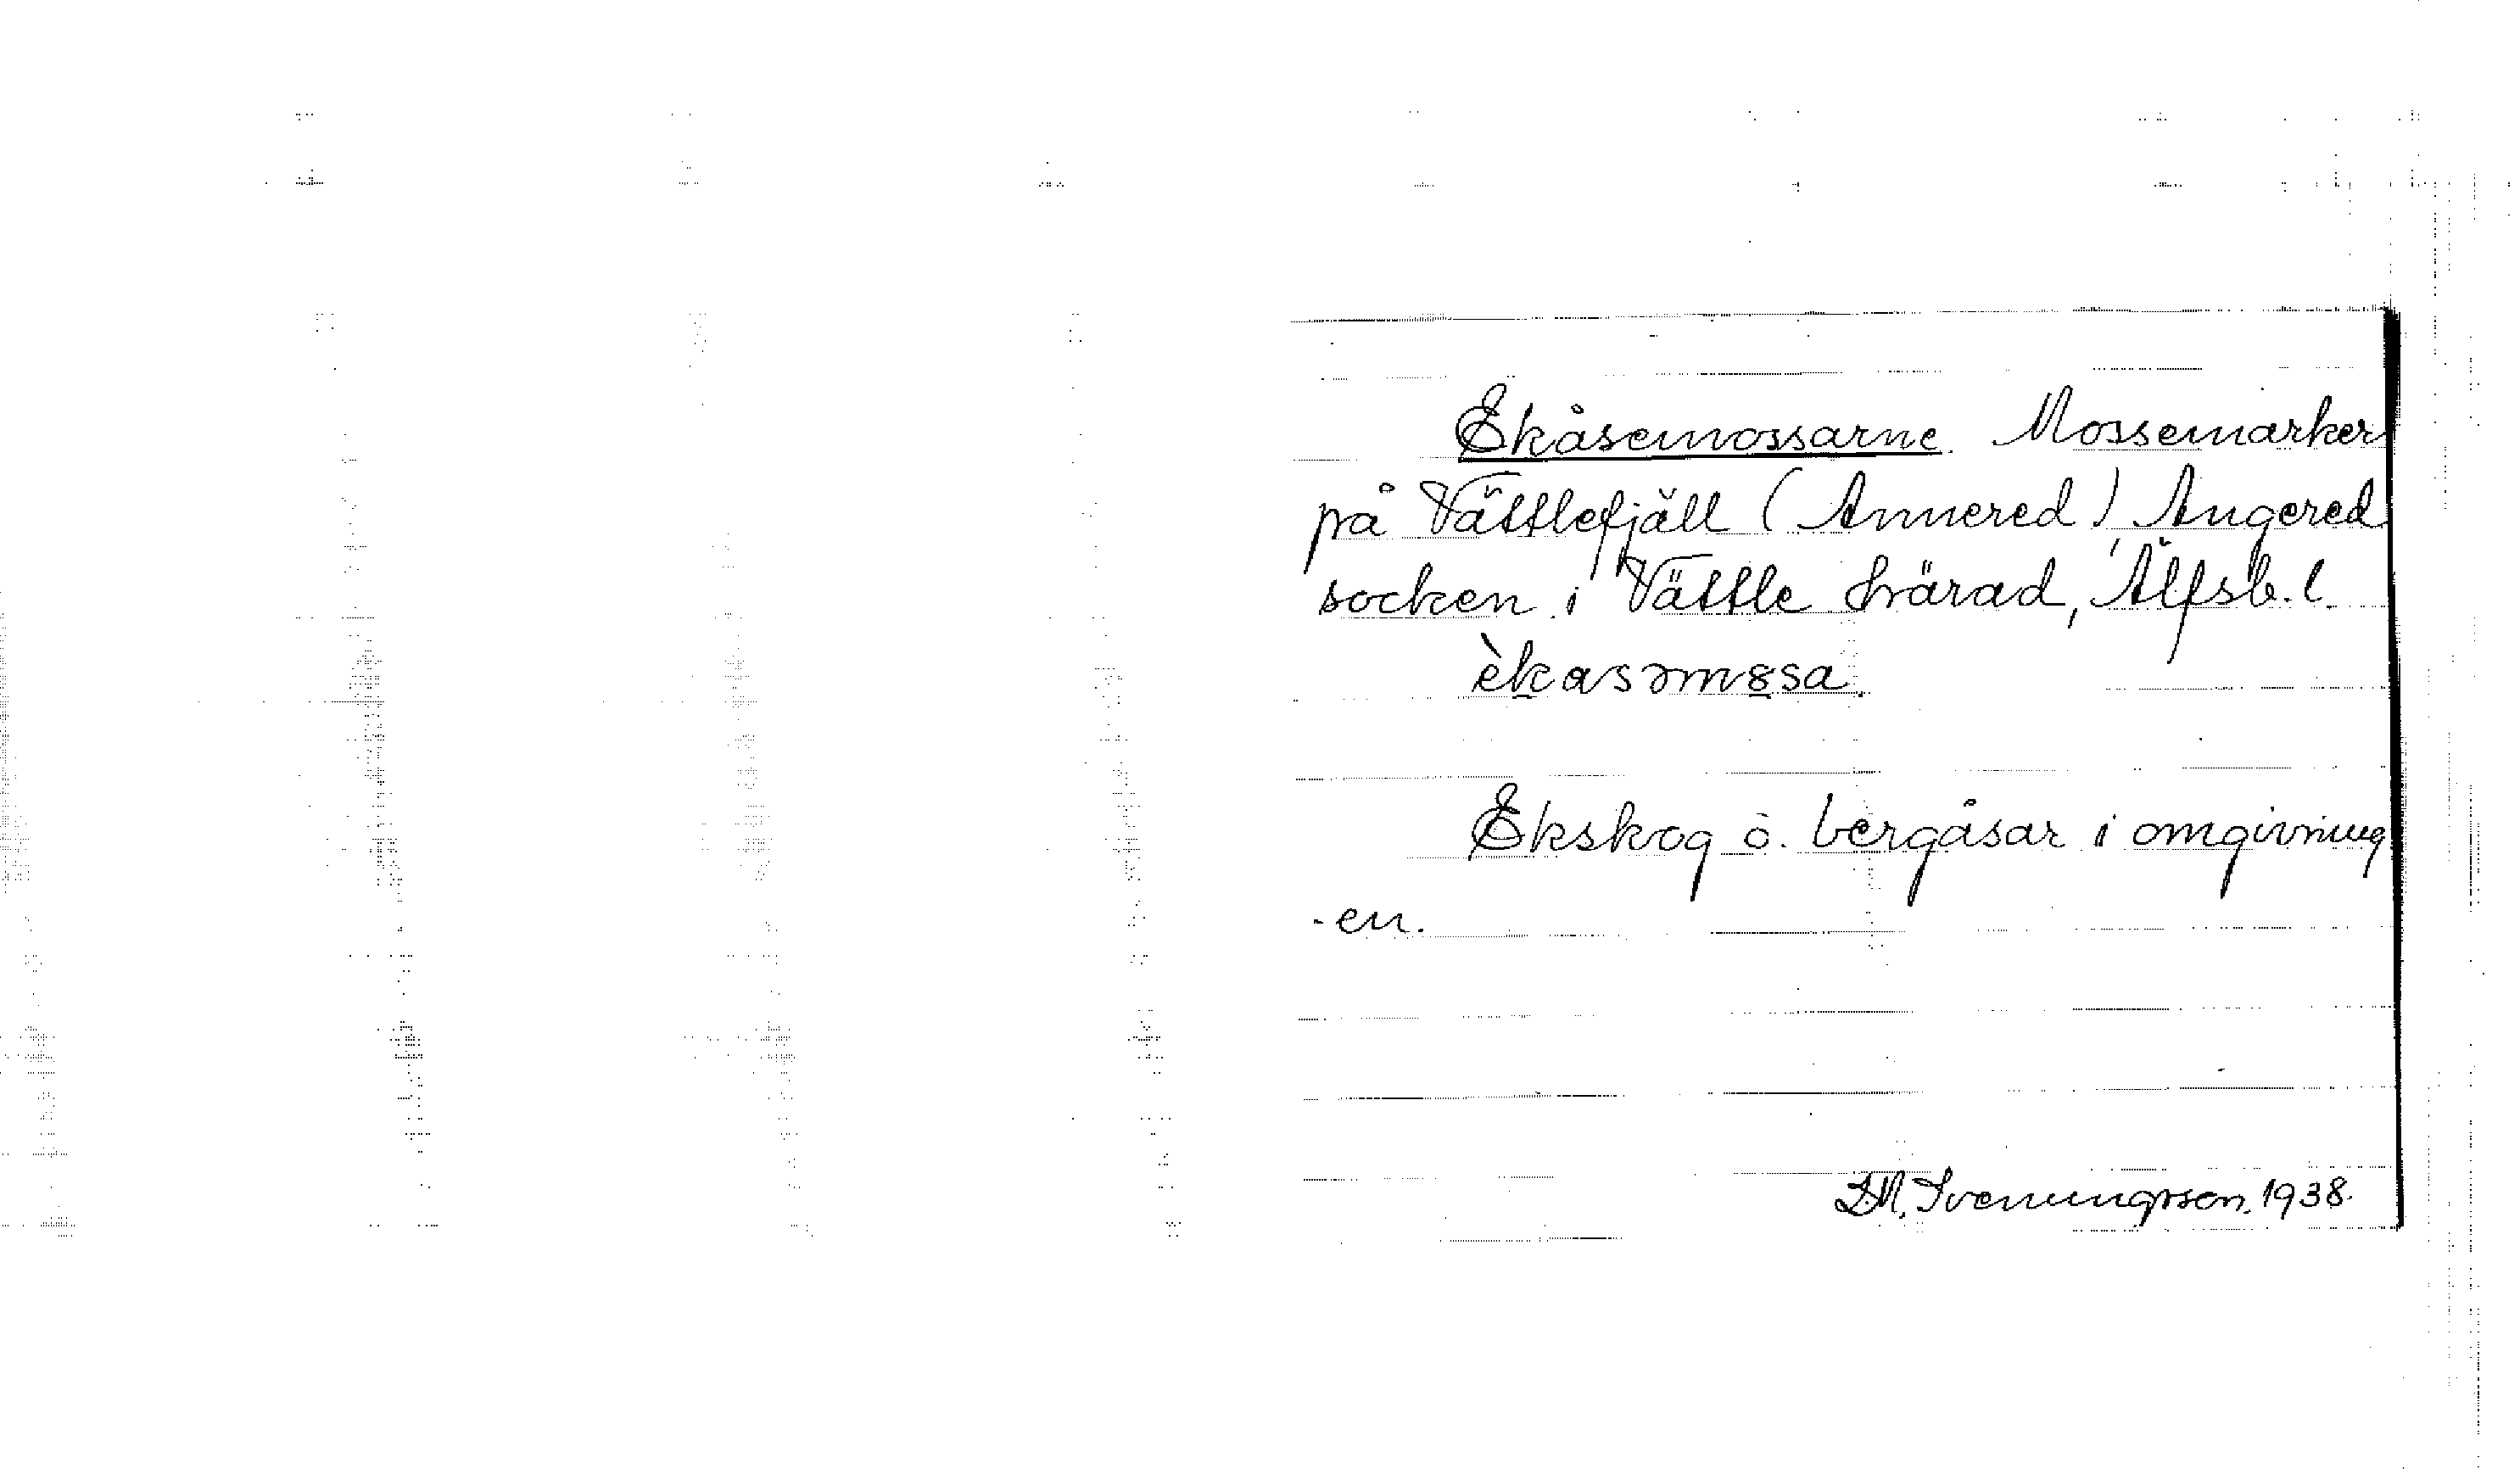 Ekåsemossarne. Mossemarker
på Vättlefjäll (Annered) Angered
socken i Vättle härad, Älfsb. l.
èkasəmȣsa.
Ekskog o. bergåsar i omgivning
-en.
Svenungsson, 1938.